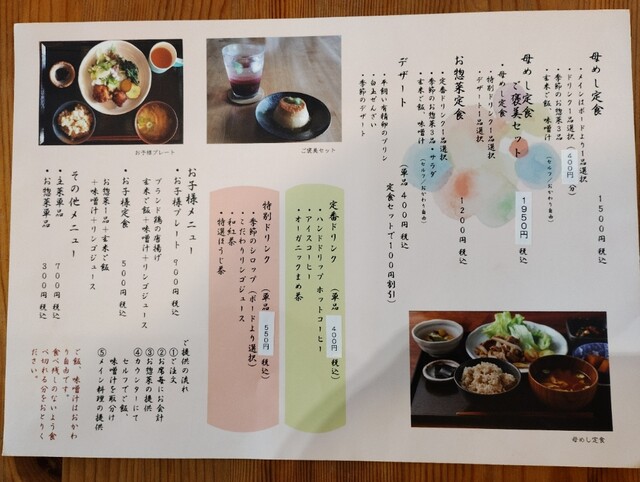 母めし定食　１５００円 税込
・メインはボードより一品選択
・ドリンク一品選択（400円 分）
・季節のお惣菜３品
玄米ご飯、味噌汁（セルフ／おかわり自由）
母めし定食
ご褒美セット　1950円 税込
・母めし定食
・特別ドリンク一品選択
・デザート一品選択
お惣菜定食　１２００円 税込
・定番ドリンク一品選択
・季節のお惣菜３品・サラダ
・玄米ご飯、味噌汁（セルフ／おかわり自由）
デザート　（単品４００円 税込　定食セットで１００円割引）
・平飼い有精卵のプリン
・白玉ぜんざい
・季節のデザート
定番ドリンク　（単品　400円 税込）
・ハンドドリップ ホットコーヒー
・アイスコーヒー
・オーガニックまめ茶
特別ドリンク　（単品　550円 税込）
・季節のシロップ（ボードより選択）
・こだわりリンゴジュース
・和紅茶
・特選ほうじ茶
お子様メニュー
・お子様プレート　９００円 税込
ブランド鶏の唐揚げ
玄米ご飯＋味噌汁＋リンゴジュース
お子様定食　５００円 税込
お惣菜一品＋玄米ご飯
＋味噌汁＋リンゴジュース
その他メニュー
・主菜単品　７００円 税込
・お惣菜単品　３００円 税込
ご提供の流れ
①ご注文
②お席毎にお会計
③お惣菜の提供
④カウンターにて
セルフでご飯、
味噌汁を取分け
⑤メイン料理の提供
ご飯、味噌汁はおかわ
り自由です。
食べ残しのないよう食
べ切れる分をおとりく
ださい。
お子様プレート
ご褒美セット
母めし定食